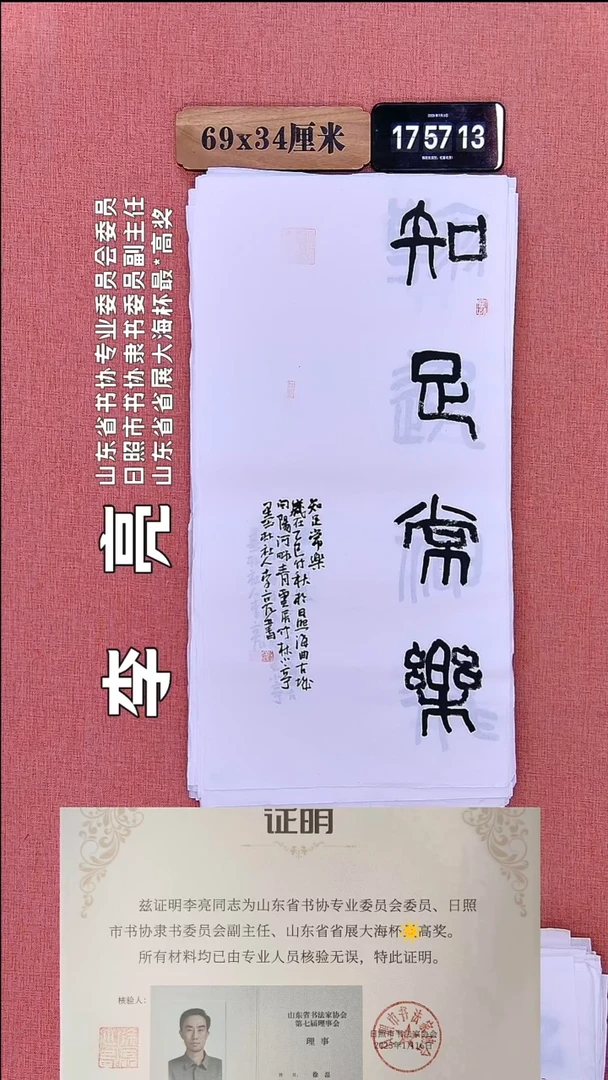 69x34厘米
2025年7月2日
17 57 13
山东省书协专业委员会委员
日照市书协隶书委员副主任
山东省省展大海杯最*高奖
李亮
知足常樂
知足常樂
歲在乙巳竹秋於日照海曲古城
向陽河畔青雲居竹林小亭
墨
社社人李亮書
证明
兹证明李亮同志为山东省书协专业委员会委员、日照
市书协隶书委员会副主任、山东省省展大海杯高奖。
所有材料均已由专业人员核验无误，特此证明。
核验人：
山东省书法家协会
第七届理事会
理事
姓名：徐磊
日照市书法家协会
2025年1月16日